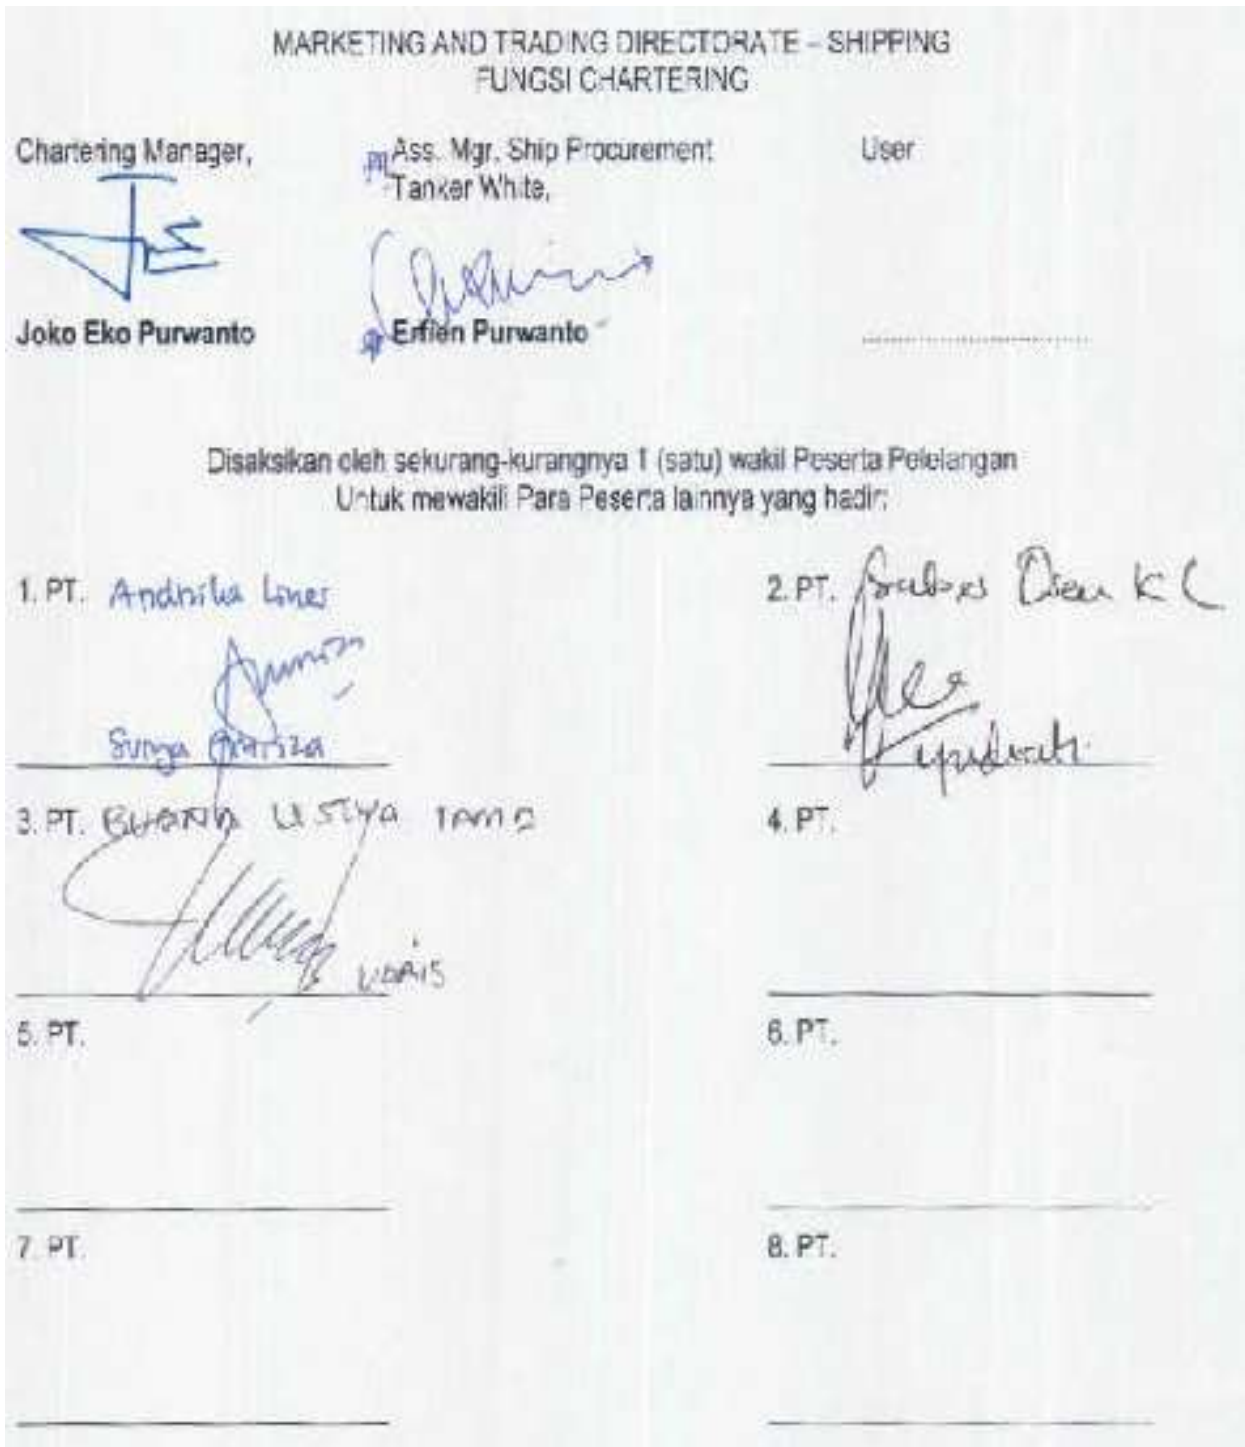 MARKETING AND TRADING DIRECTORATE – SHIPPING
FUNGSI CHARTERING
Chartering Manager,
Ass. Mgr. Ship Procurement
Tanker White,
User
Joko Eko Purwanto
Erfien Purwanto
Disaksikan oleh sekurang-kurangnya 1 (satu) wakil Peserta Pelelangan
Untuk mewakili Para Peserta lainnya yang hadir:
1. PT. Andhika Lines
2. PT.
Surya
3. PT. BUANA LISTYA TAMA
4. PT.
5. PT.
6. PT.
7. PT.
8. PT.